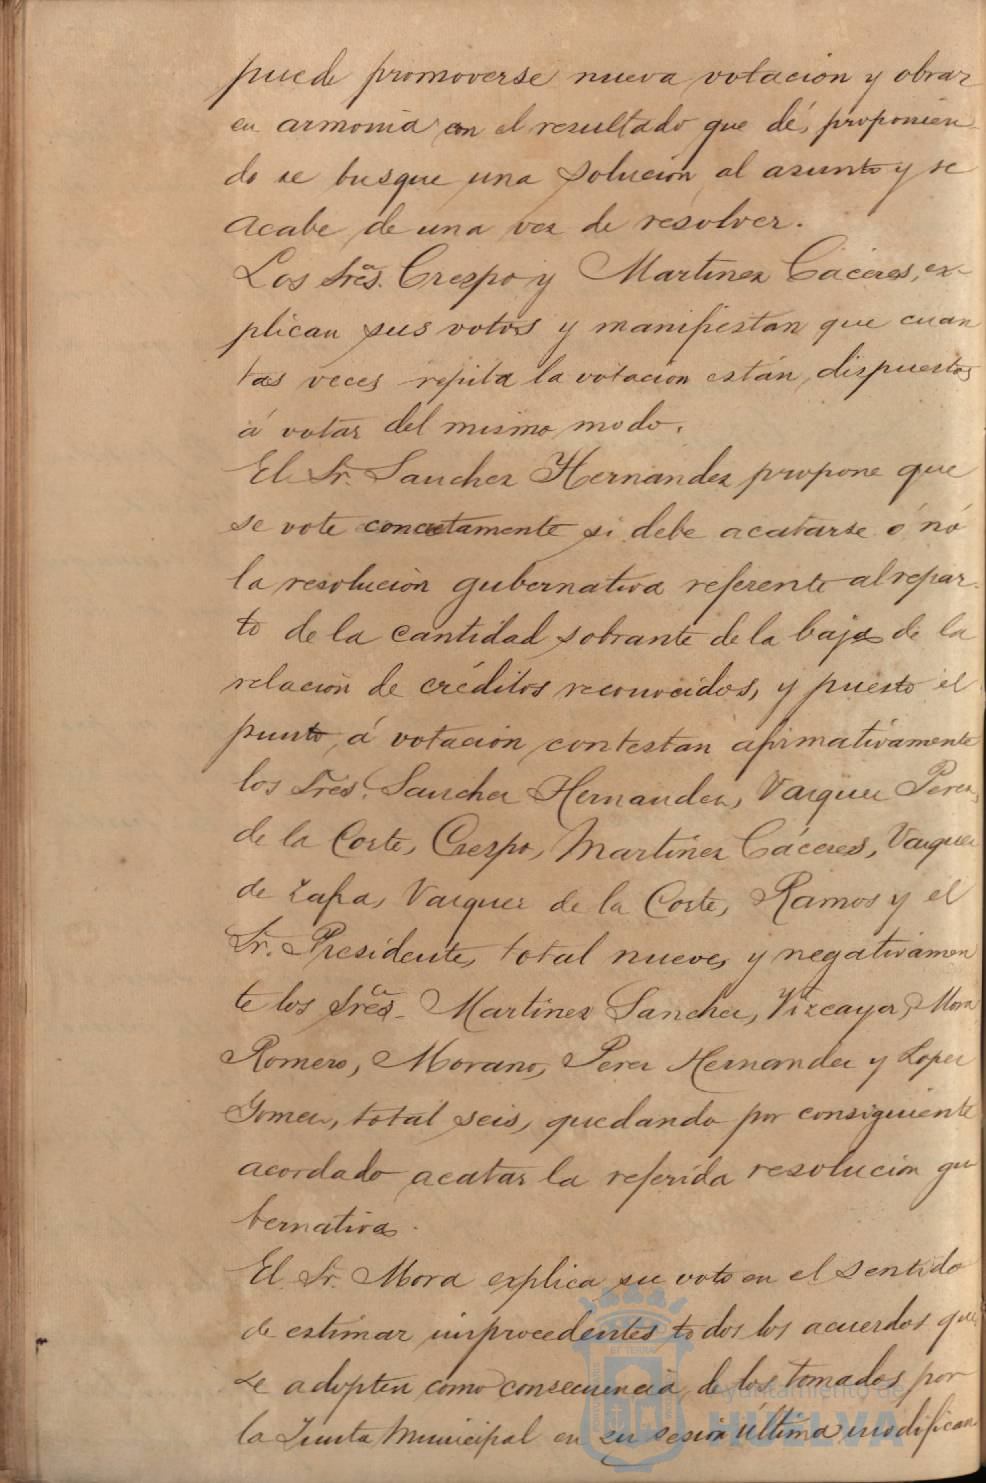 puede promoverse nueva votación y obrar
en armonía con el resultado que dé, proponien-
do se busque una solución al asunto y se
acabe de una vez de resolver.
Los Sres. Crespo y Martinez Cáceres, ex-
plican sus votos y manifiestan que cuan
tas veces repita la votación están dispuestos
á votar del mismo modo.
El Sr. Sanchez Hernandez propone que
se vote concretamente si debe acatarse ó nó
la resolución gubernativa referente al repar-
to de la cantidad sobrante de la baja de la
relación de créditos reconocidos, y puesto el
punto á votación contestan afirmativamente
los Sres. Sanchez Hernandez, Vazquez Perez,
de la Corte, Crespo, Martinez Cáceres, Vazquez
de Zafra, Vazquez de la Corte, Ramos y el
Sr. Presidente, total nueve, y negativamen
te los Sres. Martinez Sanchez, Vizcaya, Mora
Romero, Morano, Perez Hernandez y Lopez
Gomez, total seis, quedando por consiguiente
acordado acatar la referida resolución gu
bernativa.
El Sr. Mora explica su voto en el sentido
de estimar improcedentes todos los acuerdos que
se adopten como consecuencia de los tomados por
la Junta Municipal en su sesión última modifican
Ayuntamiento de
HUELVA